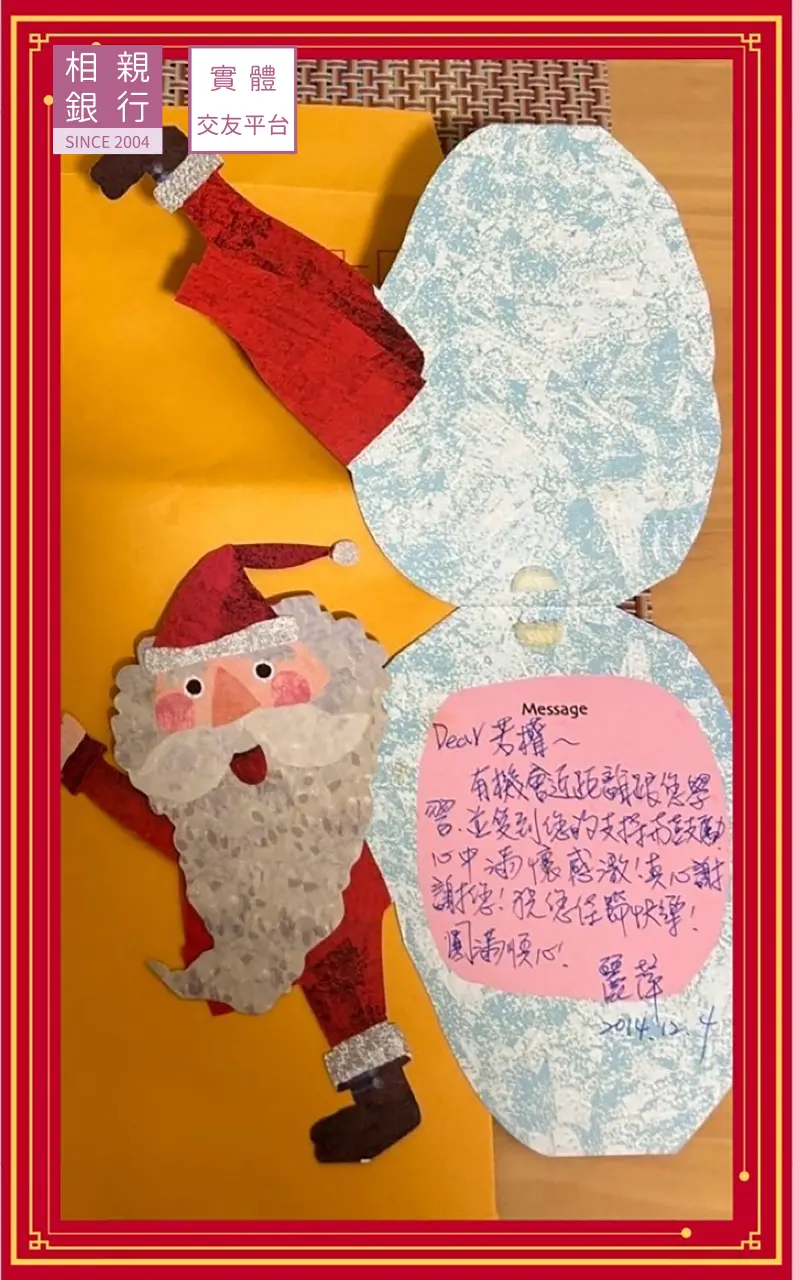 相親
銀行
SINCE 2004
實體
交友平台
Message
Dear 若權~
有機會近距離跟您學
習、並受到您的支持和鼓勵
心中滿懷感激!真心謝
謝您!祝您佳節快樂!
圓滿順心!
麗萍
2014.12.4